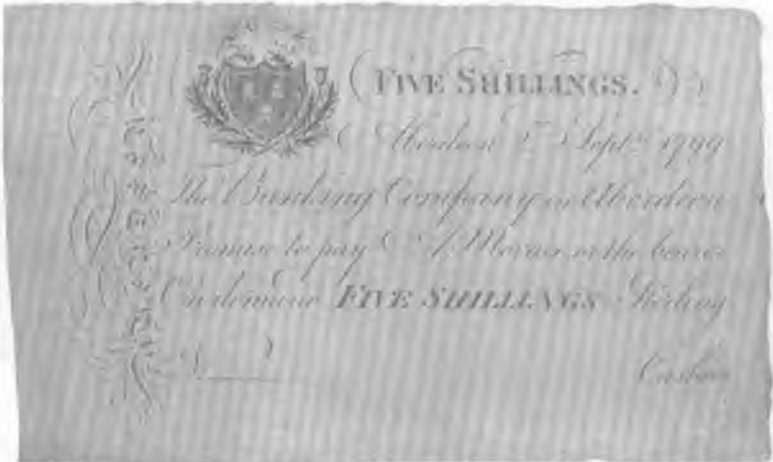 FIVE SHILLINGS.
Aberdeen Septr. 1799
The Banking Company in Aberdeen
Promise to pay or the bearer
On demand FIVE SHILLINGS Sterling
Cashier